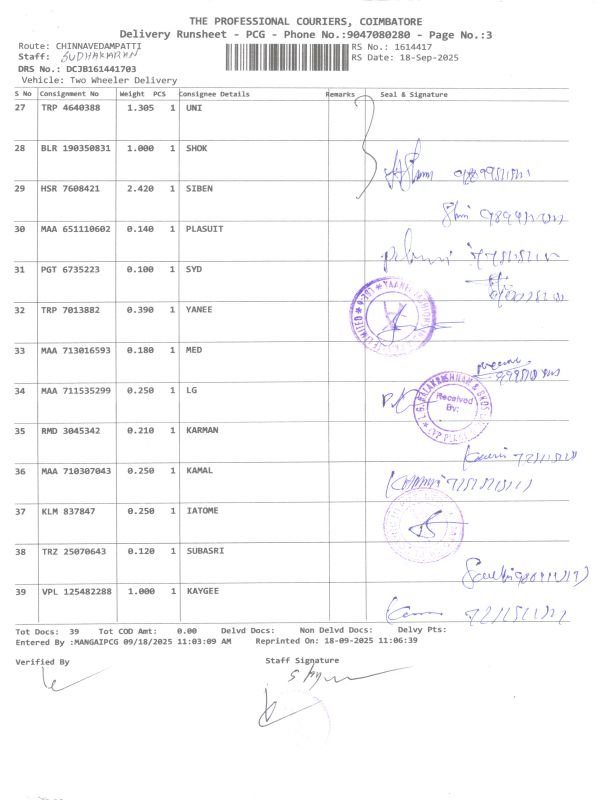 THE PROFESSIONAL COURIERS, COIMBATORE
Delivery Runsheet - PCG - Phone No.:9047080280 - Page No.:3
Route: CHINNAVEDAMPATTI
RS No.: 1614417
Staff: SUDHAKARAN
RS Date: 18-Sep-2025
DRS No.: DCJB161441703
Vehicle: Two Wheeler Delivery
S No Consignment No Weight PCS Consignee Details Remarks Seal & Signature
27 TRP 4640388 1.305 1 UNI
28 BLR 190350831 1.000 1 SHOK
29 HSR 7608421 2.420 1 SIBEN
30 MAA 651110602 0.140 1 PLASUIT
31 PGT 6735223 0.100 1 SYD
32 TRP 7013882 0.390 1 YANEE
33 MAA 713016593 0.180 1 MED
34 MAA 711535299 0.250 1 LG
Received
By:
35 RMD 3045342 0.210 1 KARMAN
36 MAA 710307043 0.250 1 KAMAL
37 KLM 837847 0.250 1 IATOME
38 TRZ 25070643 0.120 1 SUBASRI
39 VPL 125482288 1.000 1 KAYGEE
Tot Docs: 39 Tot COD Amt: 0.00 Delvd Docs: Non Delvd Docs: Delvy Pts:
Entered By :MANGAIPCG 09/18/2025 11:03:09 AM Reprinted On: 18-09-2025 11:06:39
Verified By Staff Signature